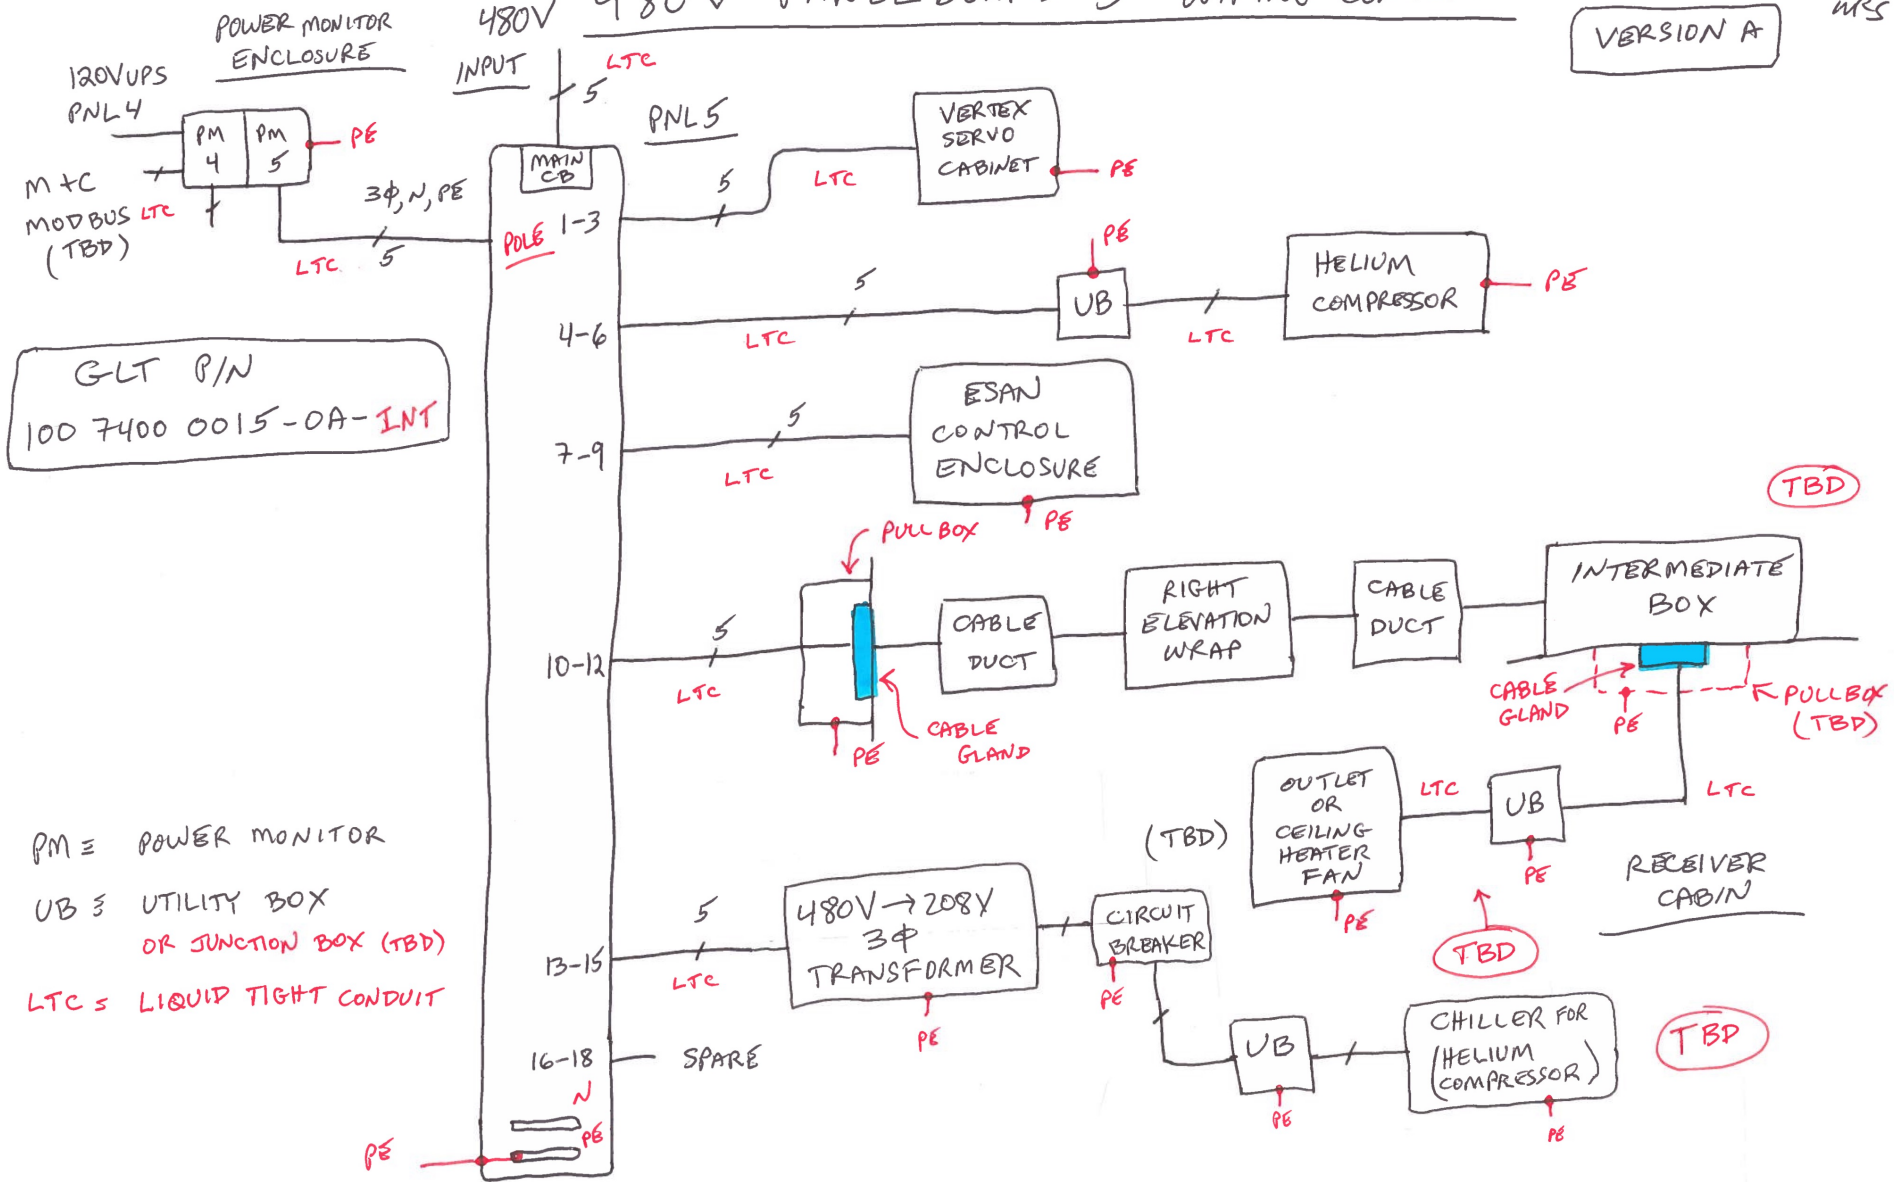 480V PANELBOARD 5
VERSION A
POWER MONITOR
ENCLOSURE
480V
INPUT
LTC
5
120V UPS
PNL 4
PM
4
PM
5
PE
M+C
MODBUS LTC
(TBD)
3Φ, N, PE
LTC
5
PNL 5
MAIN
CB
POLE 1-3
5
LTC
VERTEX
SERVO
CABINET
PE
4-6
5
LTC
PE
UB
LTC
HELIUM
COMPRESSOR
PE
GLT P/N
100 7400 0015-0A-INT
7-9
5
LTC
ESAN
CONTROL
ENCLOSURE
PE
TBD
PULL BOX
10-12
5
LTC
PE
CABLE
GLAND
CABLE
DUCT
RIGHT
ELEVATION
WRAP
CABLE
DUCT
INTERMEDIATE
BOX
CABLE
GLAND
PE
PULL BOX
(TBD)
OUTLET
OR
CEILING
HEATER
FAN
PE
LTC
UB
PE
LTC
(TBD)
TBD
RECEIVER
CABIN
PM ≡ POWER MONITOR
UB ≡ UTILITY BOX
OR JUNCTION BOX (TBD)
LTC = LIQUID TIGHT CONDUIT
13-15
5
LTC
480V→208V
3Φ
TRANSFORMER
PE
CIRCUIT
BREAKER
PE
UB
PE
CHILLER FOR
(HELIUM
COMPRESSOR)
PE
TBD
16-18 SPARE
N
PE
PE